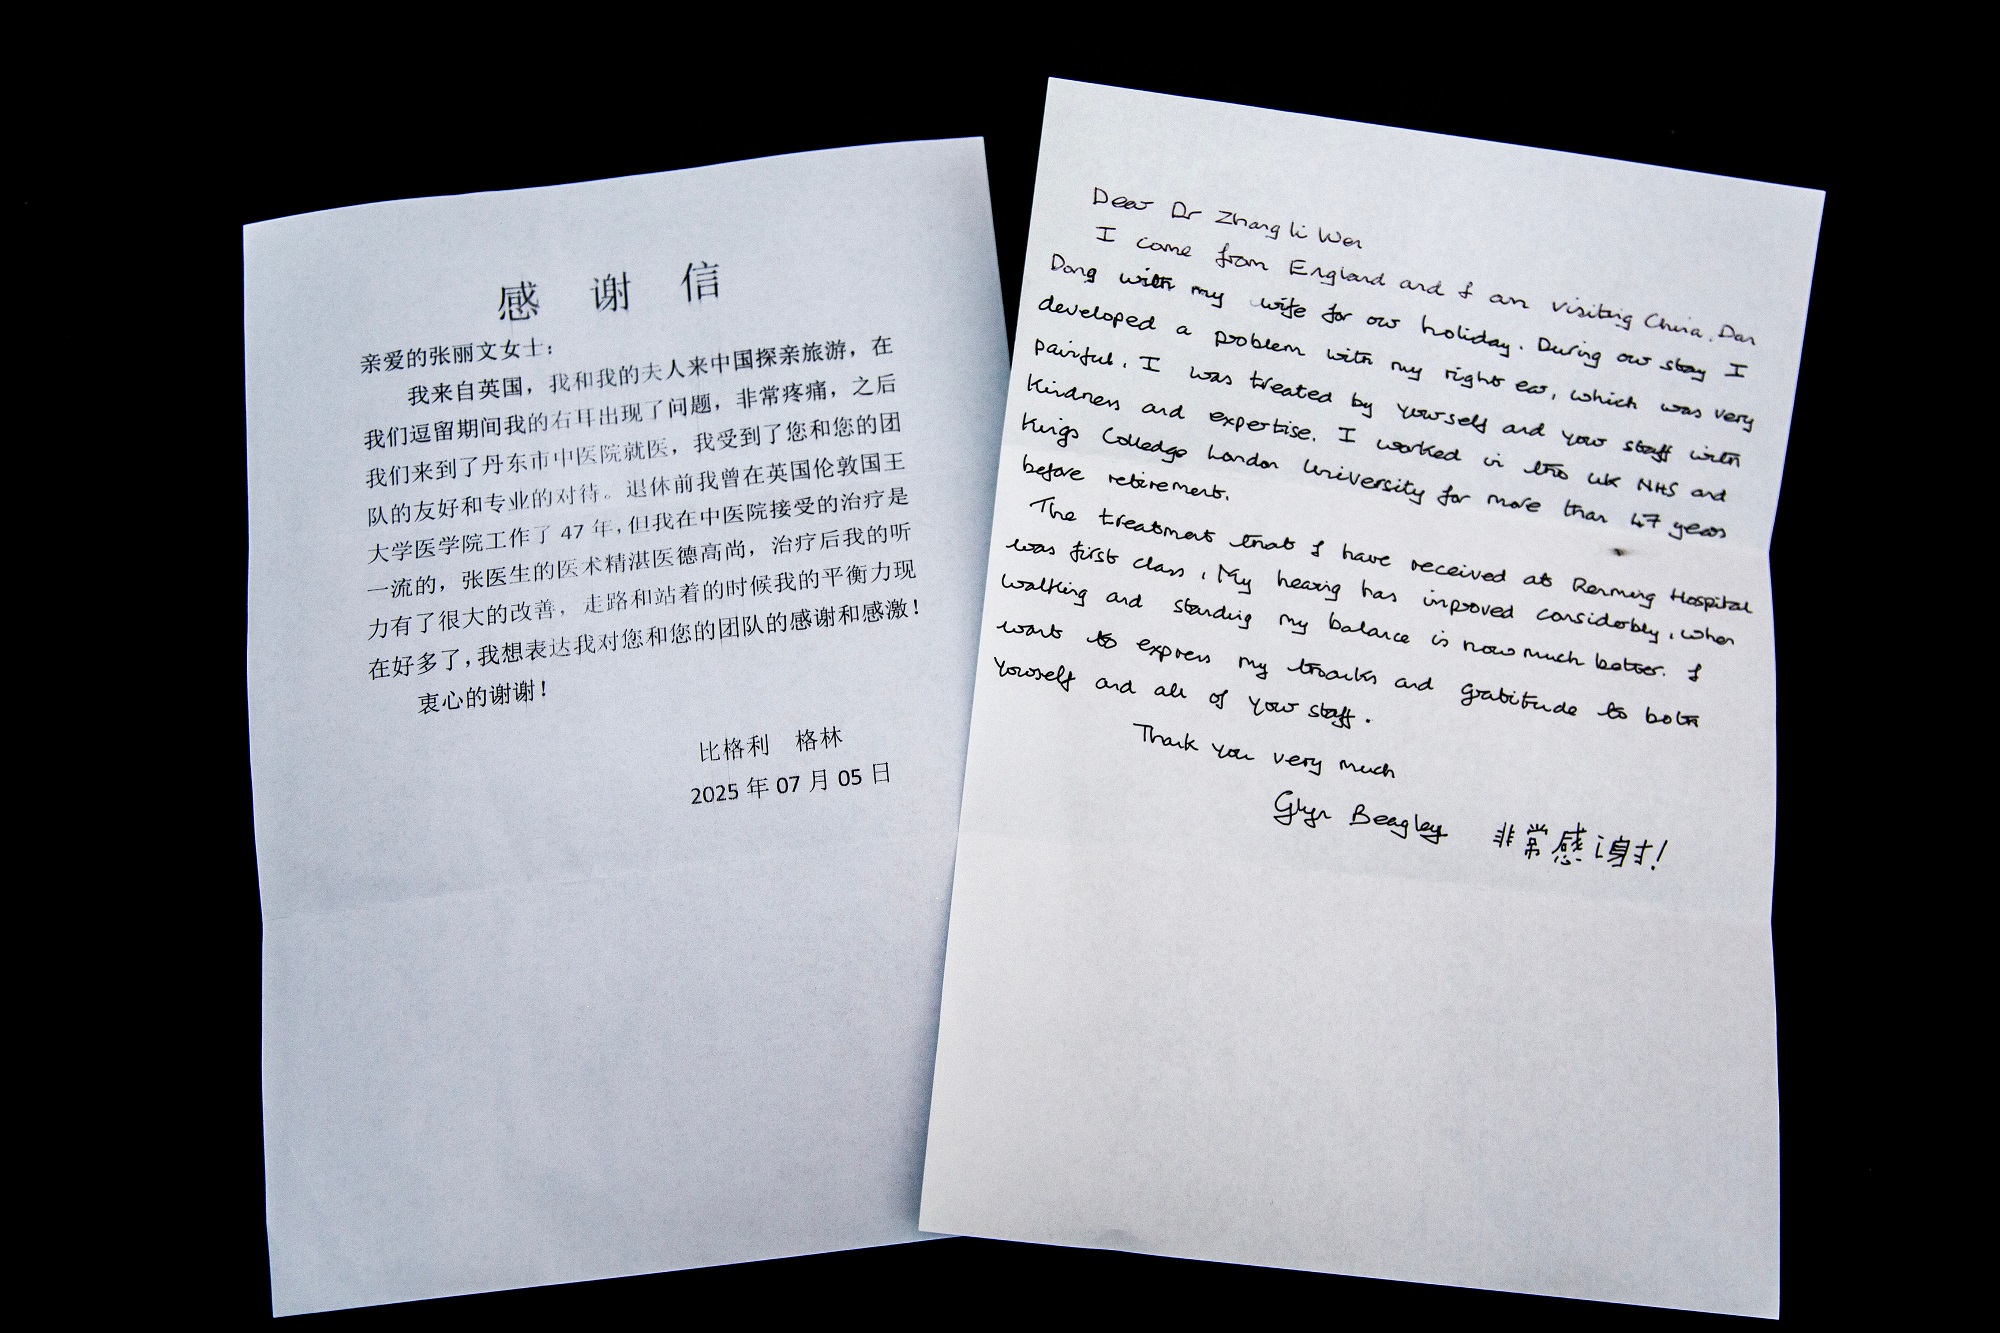 感 谢 信
亲爱的张丽文女士：
我来自英国，我和我的夫人来中国探亲旅游，在
我们逗留期间我的右耳出现了问题，非常疼痛，之后
我们来到了丹东市中医院就医，我受到了您和您的团
队的友好和专业的对待。退休前我曾在英国伦敦国王
大学医学院工作了 47 年，但我在中医院接受的治疗是
一流的，张医生的医术精湛医德高尚，治疗后我的听
力有了很大的改善，走路和站着的时候我的平衡力现
在好多了，我想表达我对您和您的团队的感谢和感激！
衷心的谢谢！
比格利 格林
2025 年 07 月 05 日
Dear Dr Zhang Li Wen
I come from England and I am visiting China. Dan
Dong with my wife for our holiday. During our stay I
developed a problem with my right ear, which was very
painful. I was treated by yourself and your staff with
kindness and expertise. I worked in the UK NHS and
Kings Colledge London University for more than 47 years
before retirement.
The treatment that I have received at Renming Hospital
was first class. My hearing has improved considerbly, when
walking and standing my balance is now much better. I
want to express my thanks and gratitude to both
yourself and all of your staff.
Thank you very much
Glyn Beagley 非常感谢！